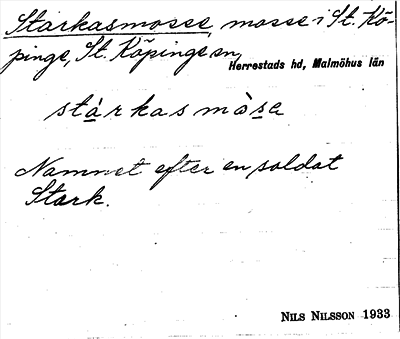 Starkasmosse, mosse i St. Kö-
pinge, St. Köpinge sn,
Herrestads hd, Malmöhus län
stárkasmòsa
Namnet efter en soldat
Stark.
NILS NILSSON 1933